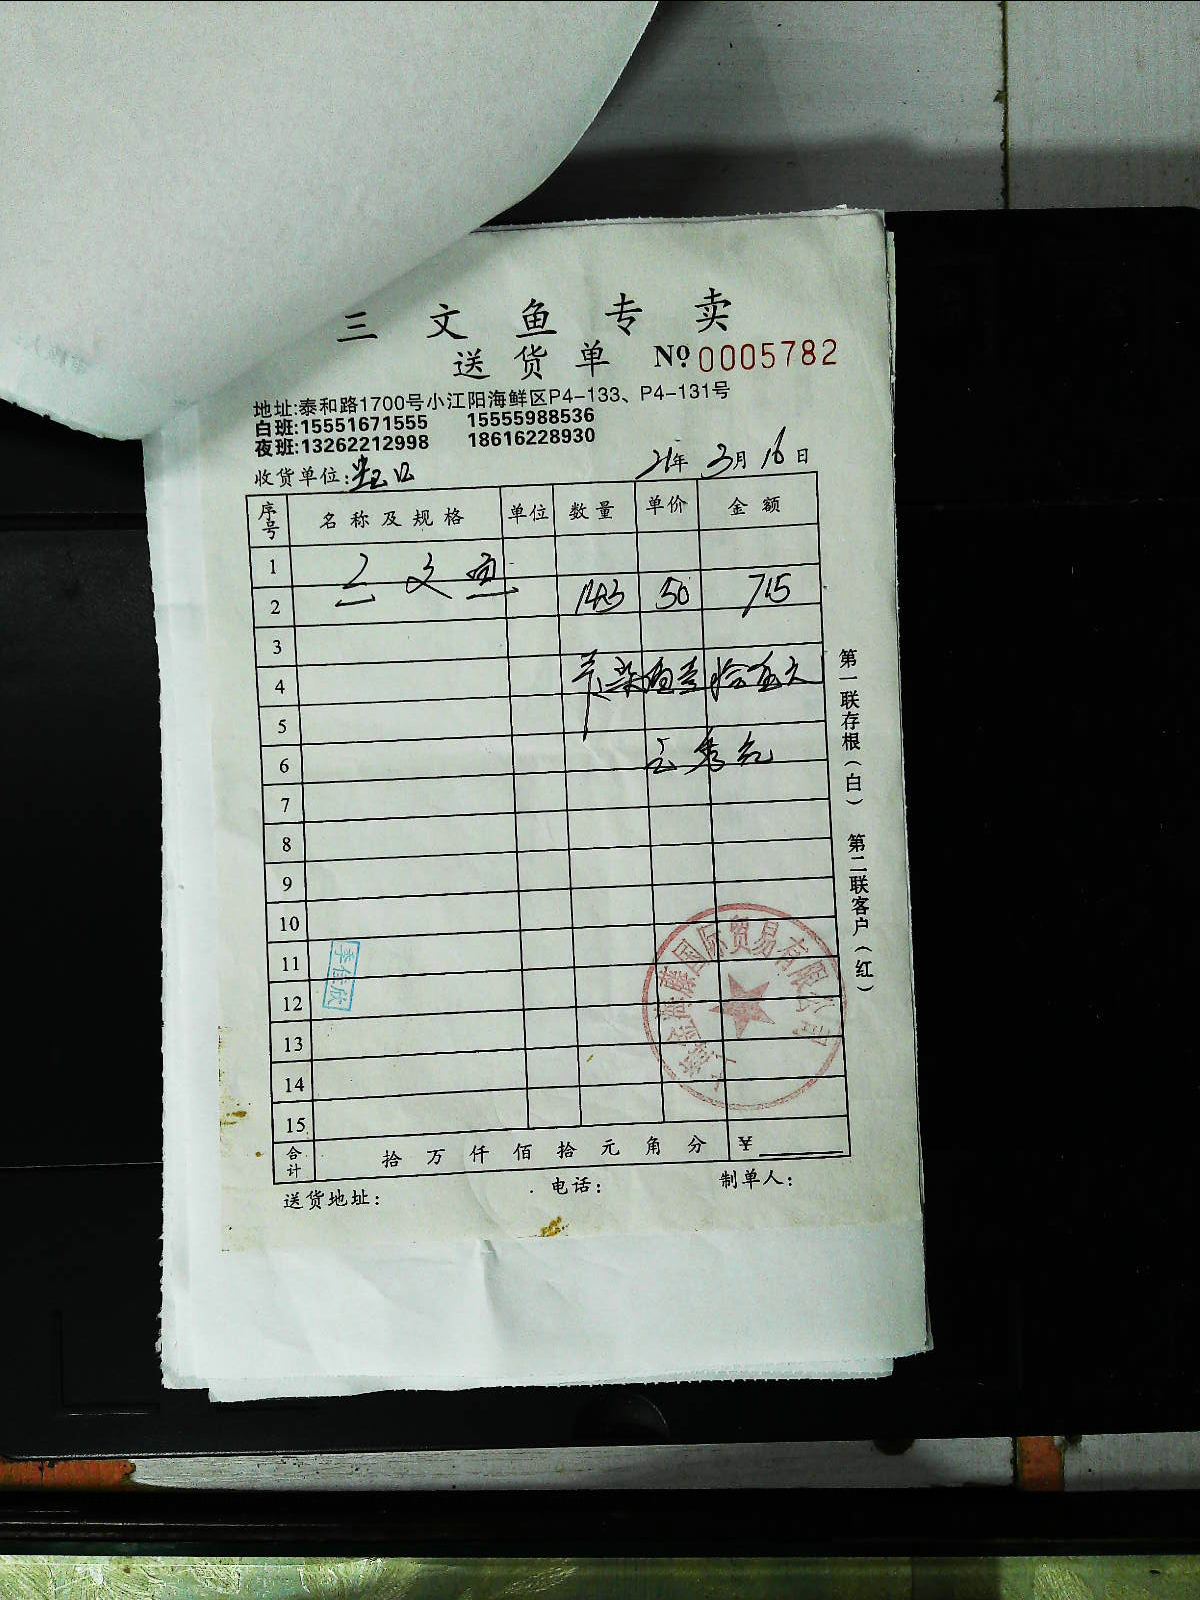 三文鱼专卖
送货单 № 0005782
地址:泰和路1700号小江阳海鲜区P4-133、P4-131号
白班:15551671555 15555988536
夜班:13262212998 18616228930
收货单位: 21年 3月 16日
序号 名称及规格 单位 数量 单价 金额
1 三文鱼
2 143 50 715
3
4 柒佰壹拾五元
5
6
7
8
9
10
11
12
13
14
15
合计 拾万仟佰拾元角分 ¥
送货地址: 电话: 制单人:
第一联存根(白) 第二联客户(红)
国际贸易有限公司